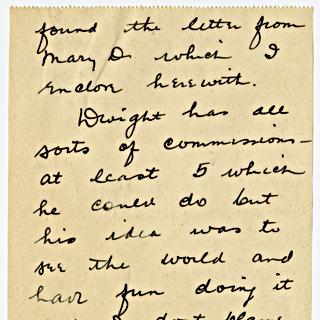 found the letter from
Mary D which I
enclose herewith.
Dwight has all
sorts of commissions—
at least 5 which
he could do but
his idea was to
see the world and
have fun doing it
I don't blame